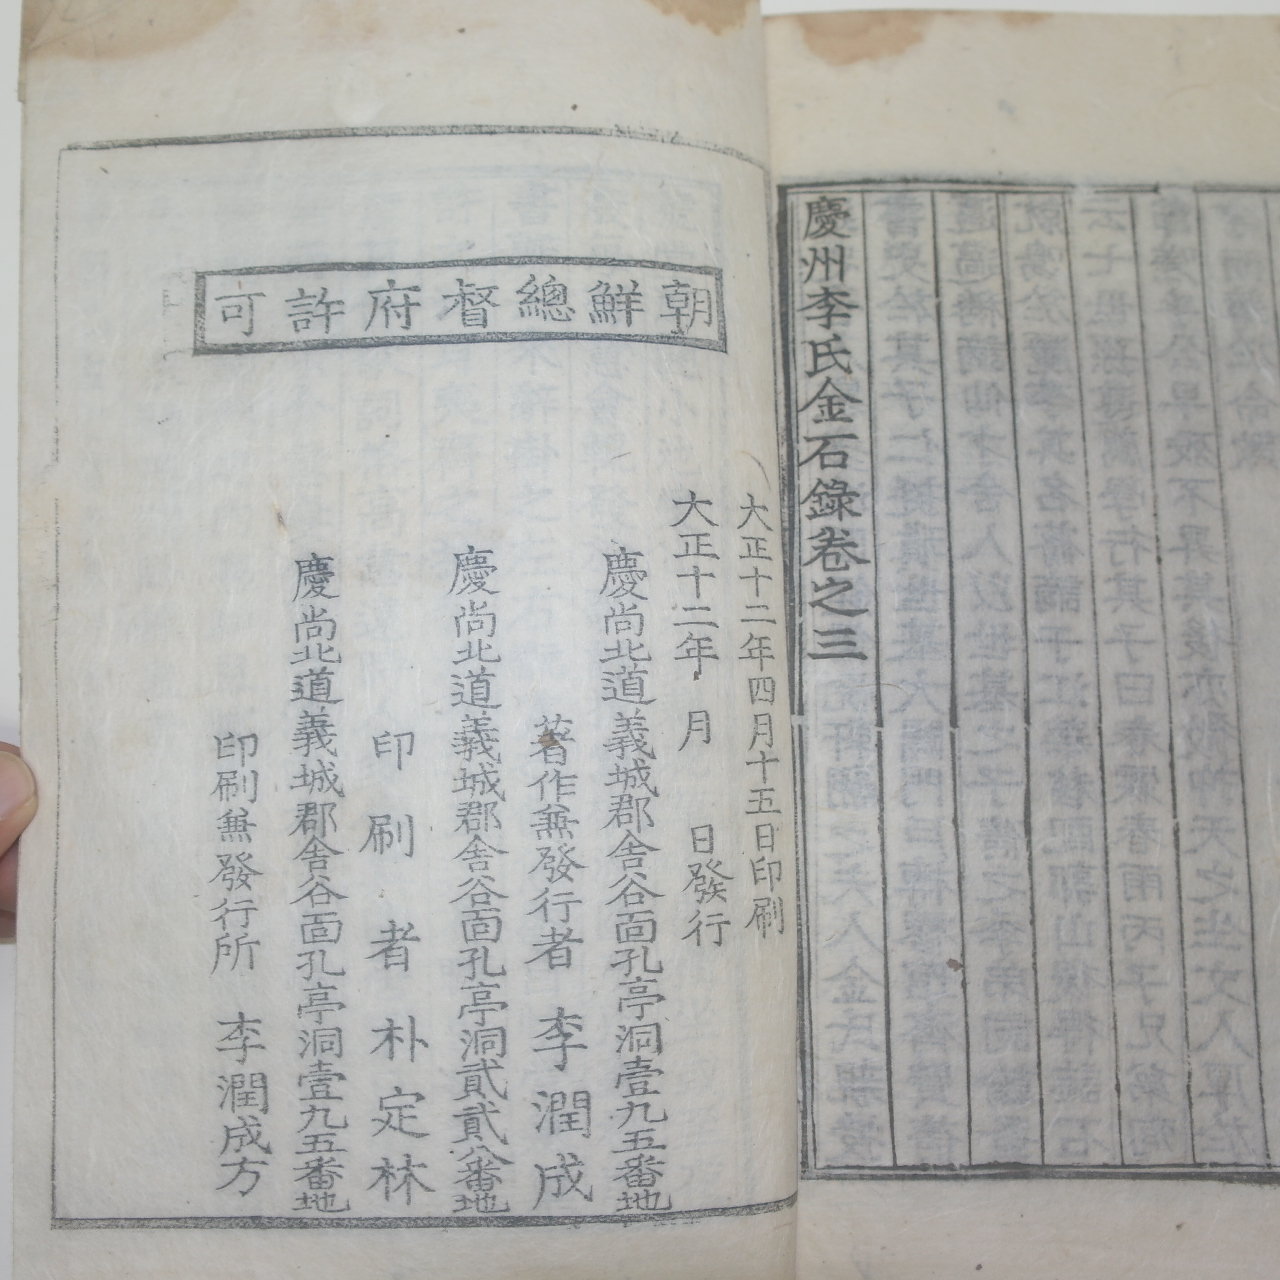 慶州李氏金石錄卷之三
朝鮮總督府許可
大正十二年四月十五日印刷
大正十二年 月 日發行
慶尚北道義城郡舍谷面孔亭洞壹九五番地
著作兼發行者 李潤成
慶尚北道義城郡舍谷面孔亭洞貳貳八番地
印刷者 朴定林
慶尚北道義城郡舍谷面孔亭洞壹九五番地
印刷兼發行所 李潤成方